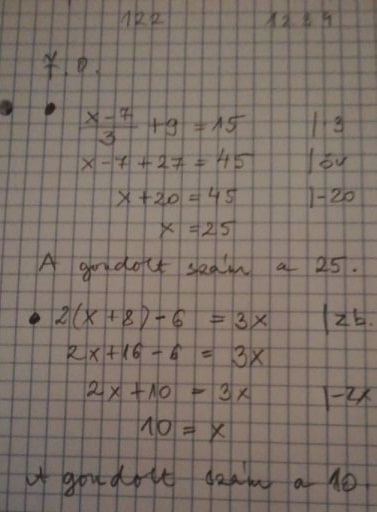 122 12.24
7.o.
x-7/3 +9 = 15 |·3
x-7+27 = 45 |öv
x+20 = 45 |-20
x = 25
A gondolt szám a 25.
2(x+8)-6 = 3x |zb.
2x+16-6 = 3x
2x+10 = 3x |-2x
10 = x
A gondolt szám a 10.